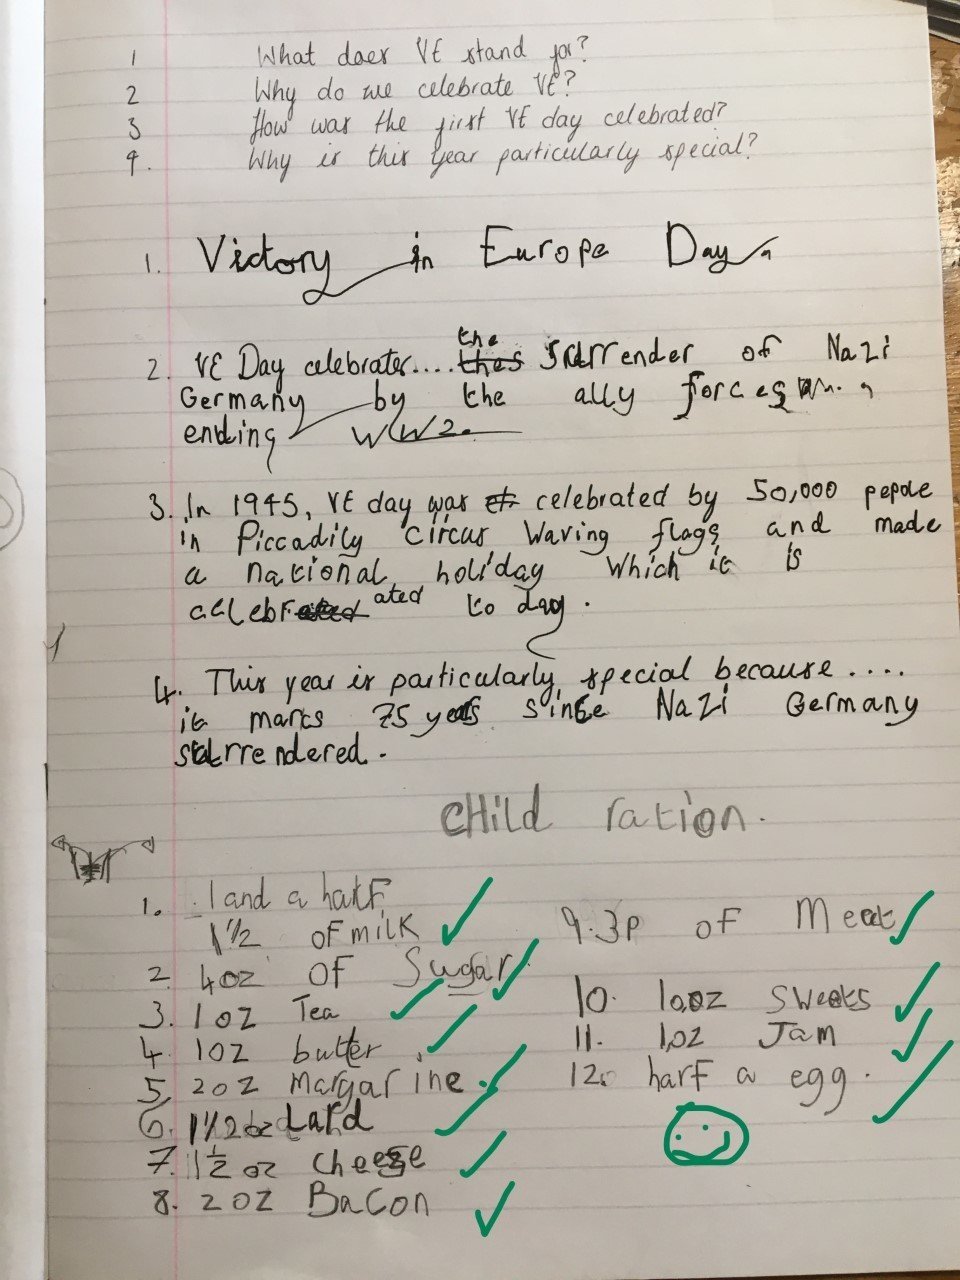 1 What does VE stand for?
2 Why do we celebrate VE?
3 How was the first VE day celebrated?
4. Why is this year particularly special?
1. Victory in Europe Day.
the
2. VE Day celebrates.... thes surrender of Nazi
Germany by the ally forces
ending WW2.
3. In 1945, VE day was celebrated by 50,000 pepole
in Piccadily circus Waving flags and made
a national holiday which it is
celebrated ated to day.
4. This year is particularly special because ....
it marks 75 years since Nazi Germany
surrendered.
CHild ration.
1. 1 and a half
1 1/2 of milk
2. 4oz of Sugar
3. 1oz Tea
4. 1oz butter
5. 2oz margarine
6. 1 1/2 oz Lard
7. 1 1/2 oz cheese
8. 2oz Bacon
9. 3p of Meat
10. 10oz Sweets
11. 1oz Jam
12. harf a egg.